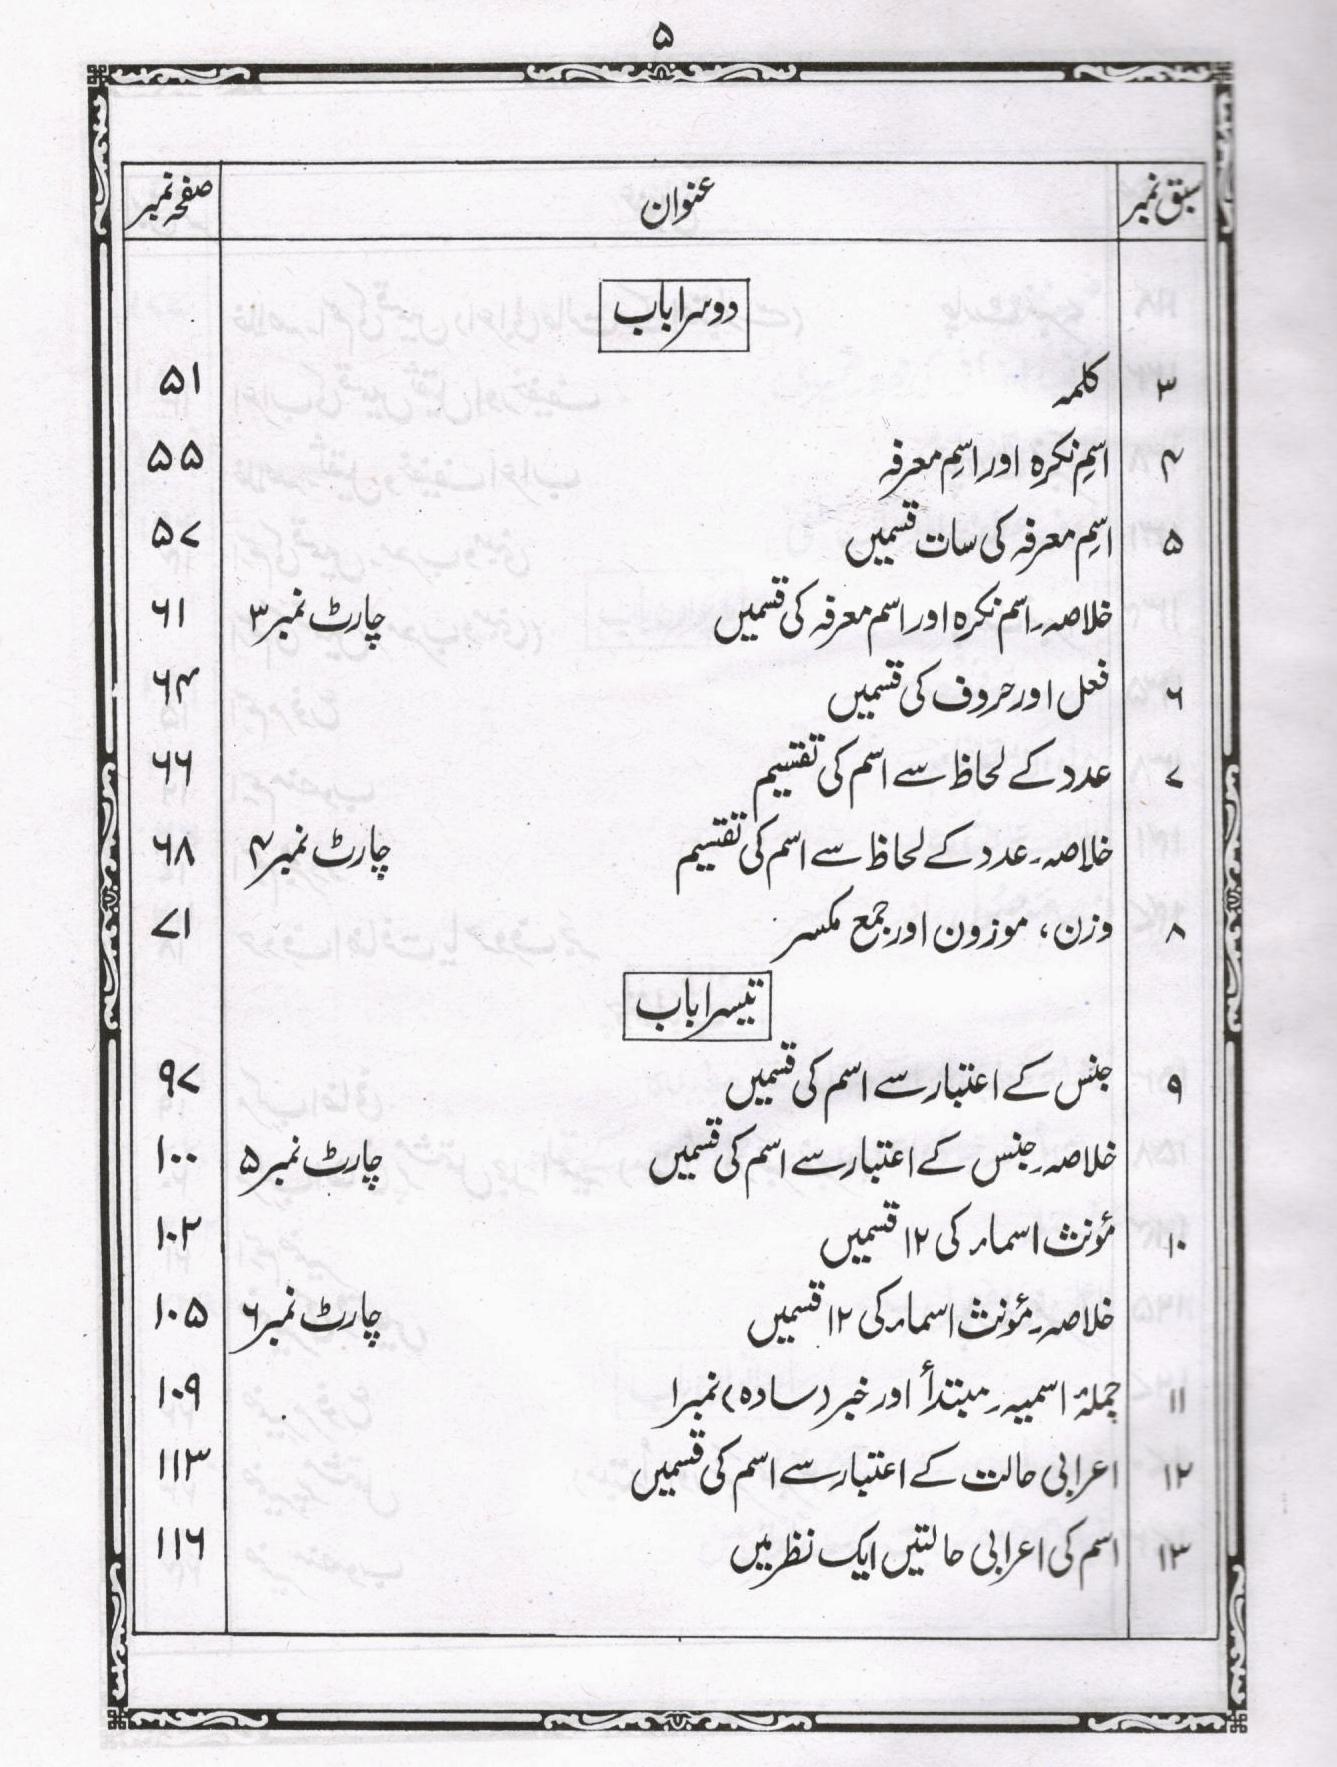 ۵
سبق نمبر عنوان صفحہ نمبر
دوسرا باب
۳ کلمہ ۵۱
۴ اسمِ نکرہ اور اسمِ معرفہ ۵۵
۵ اسِم معرفہ کی سات قسمیں ۵۷
خلاصہ۔ اسم نکرہ اور اسم معرفہ کی قسمیں چارٹ نمبر ۳ ۶۱
۶ فعل اور حروف کی قسمیں ۶۴
۷ عدد کے لحاظ سے اسم کی تقسیم ۶۶
خلاصہ۔ عدد کے لحاظ سے اسم کی تقسیم چارٹ نمبر ۴ ۶۸
۸ وزن، موزون اور جمع مکسر ۷۱
تیسرا باب
۹ جنس کے اعتبار سے اسم کی قسمیں ۹۷
خلاصہ۔ جنس کے اعتبار سے اسم کی قسمیں چارٹ نمبر ۵ ۱۰۰
۱۰ مؤنث اسماء کی ۱۲ قسمیں ۱۰۲
خلاصہ۔ مؤنث اسماء کی ۱۲ قسمیں چارٹ نمبر ۶ ۱۰۵
۱۱ جملۂ اسمیہ۔ مبتدأ اور خبر (سادہ) نمبر ۱ ۱۰۹
۱۲ اعرابی حالت کے اعتبار سے اسم کی قسمیں ۱۱۳
۱۳ اسم کی اعرابی حالتیں ایک نظر میں ۱۱۶